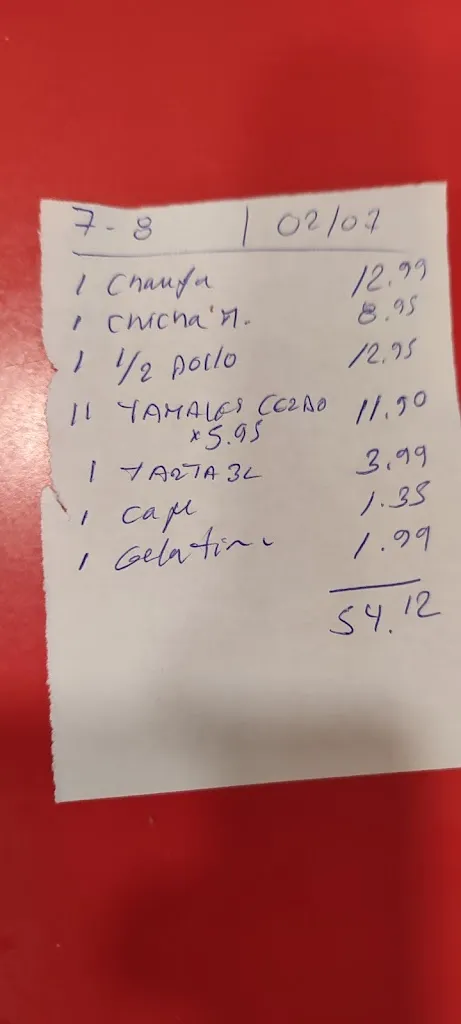 7-8 | 02/07
1 Chaufa 12.99
1 chicha M. 8.95
1 1/2 Pollo 12.95
11 TAMALES CERDO 11.90
x5.95
1 TARTA 3L 3.99
1 cafe 1.35
1 Gelatina 1.99
54.12